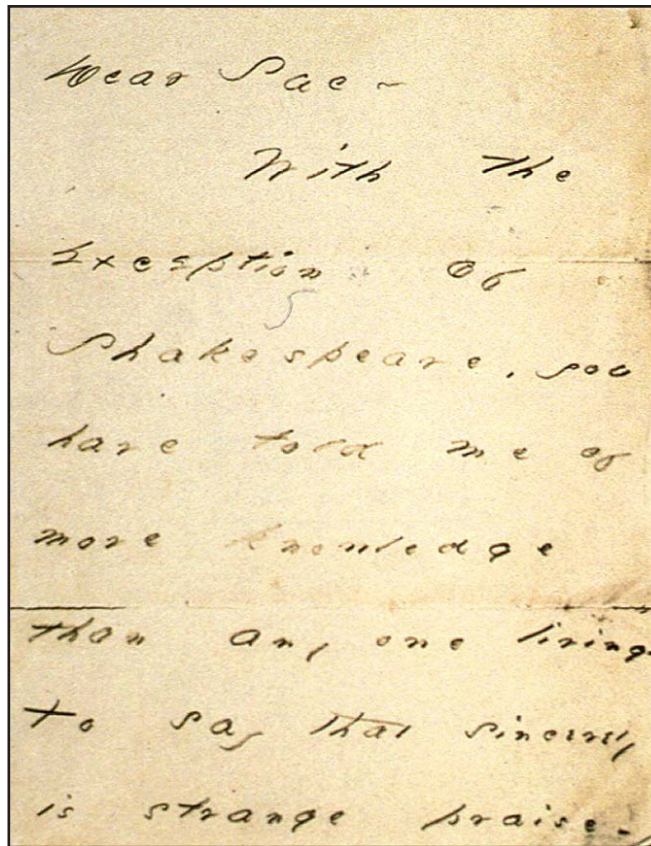 Dear Sue -
With the
Exception of
Shakespeare, you
have told me of
more knowledge
than any one living -
To say that sincerely
is strange praise -